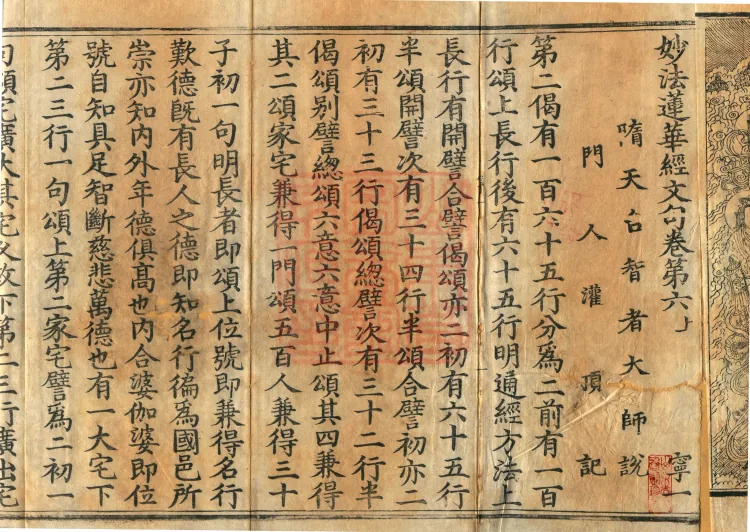 妙法蓮華經文句卷第六上 寧一
隋天台智者大師說
門人灌頂記
第二偈有一百六十五行分爲二前有一百
行頌上長行後有六十五行明通經方法上
長行有開譬合譬偈頌亦二初有六十五行
半頌開譬次有三十四行半頌合譬初亦二
初有三十三行偈頌總譬次有三十二行半
偈頌別譬總頌六意六意中止頌其四兼得
其二頌家宅兼得一門頌五百人兼得三十
子初一句明長者即頌上位號即兼得名行
歎德旣有長人之德即知名行徧爲國邑所
崇亦知內外年德俱髙也內合婆伽婆即位
號自知具足智斷慈悲萬德也有一大宅下
第二三行一句頌上第二家宅譬爲二初一
句頌宅廣大其宅久故下第二三行廣出宅